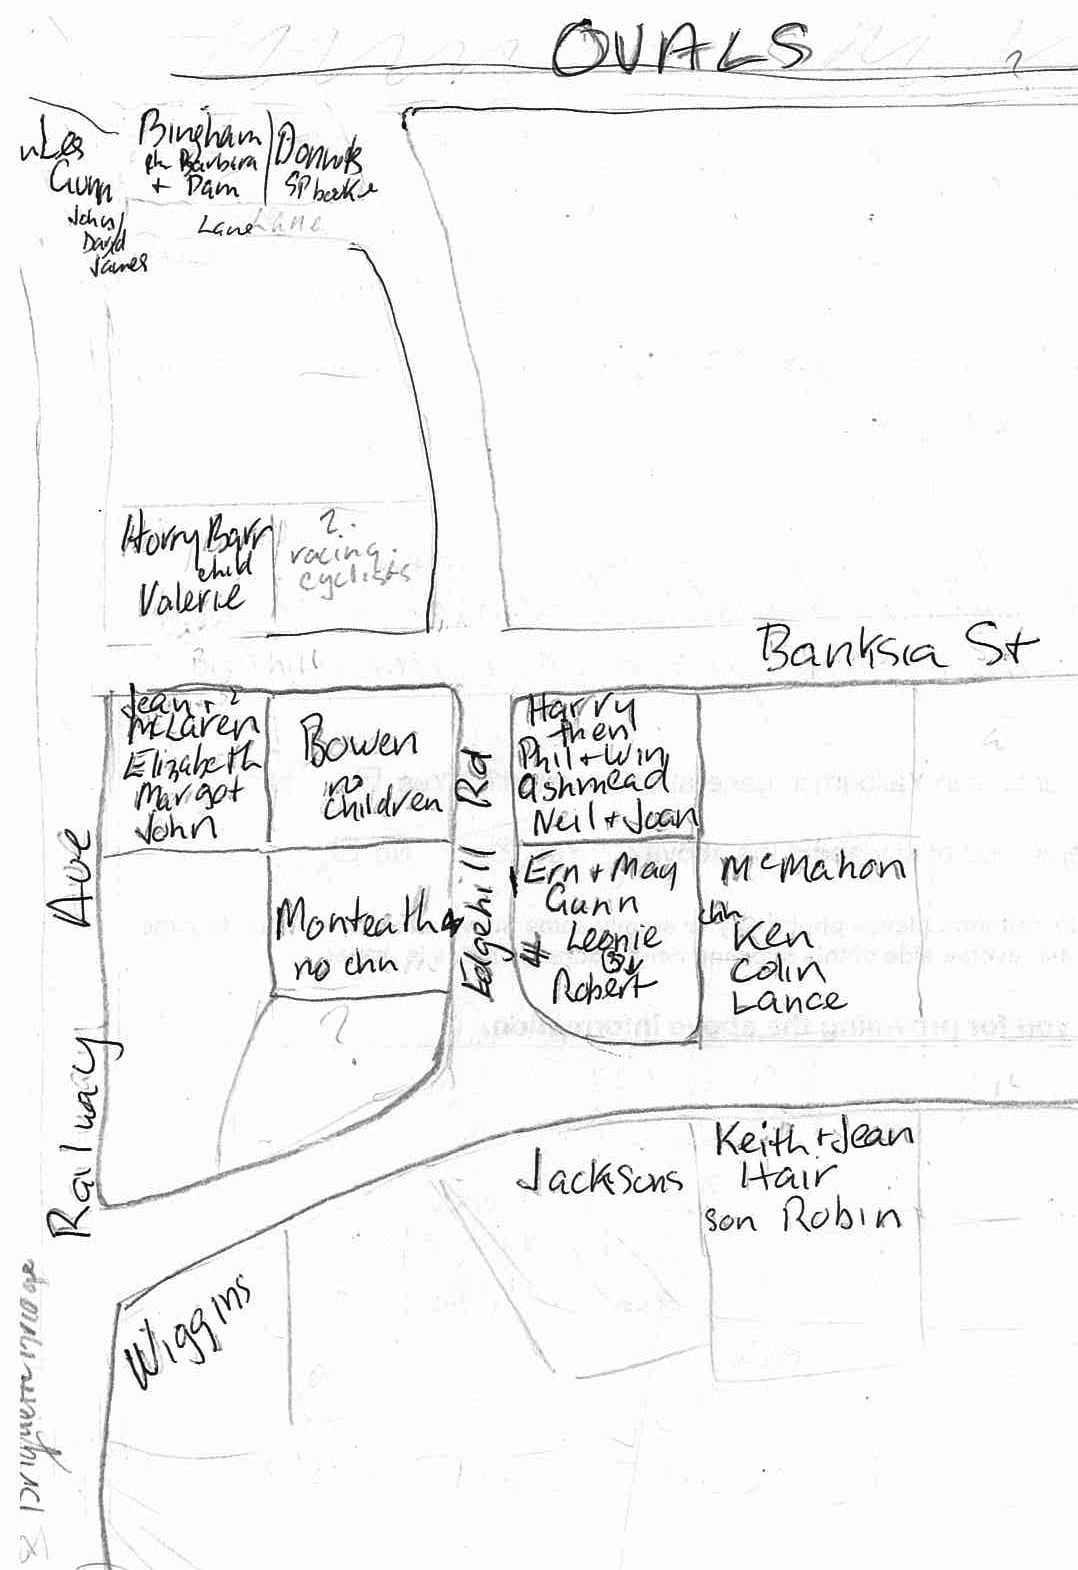 OVALS
?
Les
Gunn
John/
David
James
Bingham
ch Barbara
+ Dam
SP bookie
Lane Lane
Horry Barr
child
Valerie
?
racing
cyclists
Banksia St
Jean + ?
McLaren
Elizabeth
Margot
John
Bowen
no
children
Monteath
no chn
?
Railway Ave
Edgehill Rd
Harry
then
Phil + Win
Ashmead
Neil + Joan
Ern + May
Gunn
Leonie
Robert
McMahon
chn
Ken
Colin
Lance
Jacksons
Keith + Jean
Hair
son Robin
Wiggins